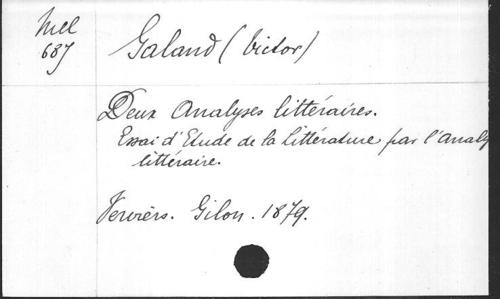 Mel
687
Galand (Victor)
Deux Analyses littéraires.
Essai d'Etude de la Littérature par l'Analy
littéraire.
Verviers. Gilon. 1879.